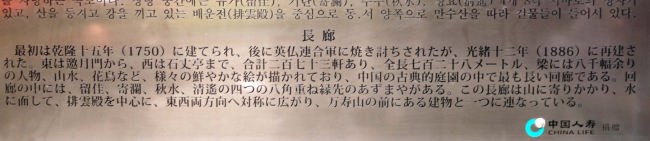 있고, 산을 등지고 강을 끼고 있는 배운전(排雲殿)을 중심으로 동.서 양쪽으로 만수산을 따라 건물들이 들어서 있다.
長廊
最初は乾隆十五年（1750）に建てられ、後に英仏連合軍に焼き討ちされたが、光緒十二年（1886）に再建さ
れた。東は邀月門から、西は石丈亭まで、合計二百七十三軒あり、全長七百二十八メートル、梁には八千幅余り
の人物、山水、花鳥など、様々の鮮やかな絵が描かれており、中国の古典的庭園の中で最も長い回廊である。回
廊の中には、留佳、寄瀾、秋水、清遙の四つの八角重ね縁先のあずまやがある。この長廊は山に寄りかかり、水
に面して、排雲殿を中心に、東西両方向へ対称に広がり、万寿山の前にある建物と一つに連なっている。
中国人寿 捐赠
CHINA LIFE